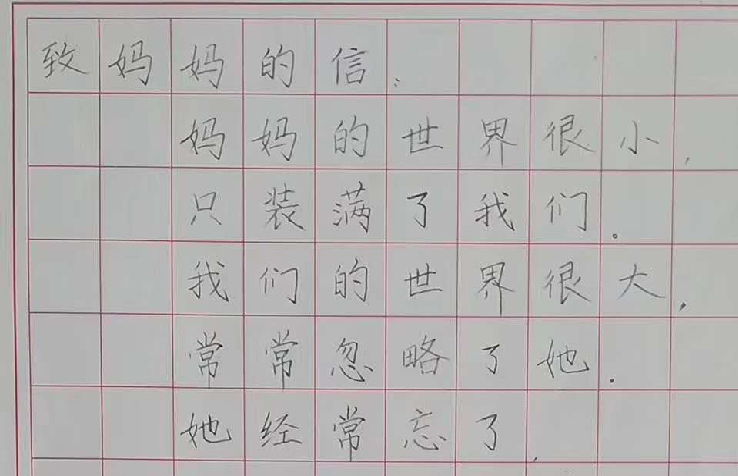 致妈妈的信：
妈妈的世界很小，
只装满了我们。
我们的世界很大，
常常忽略了她。
她经常忘了，